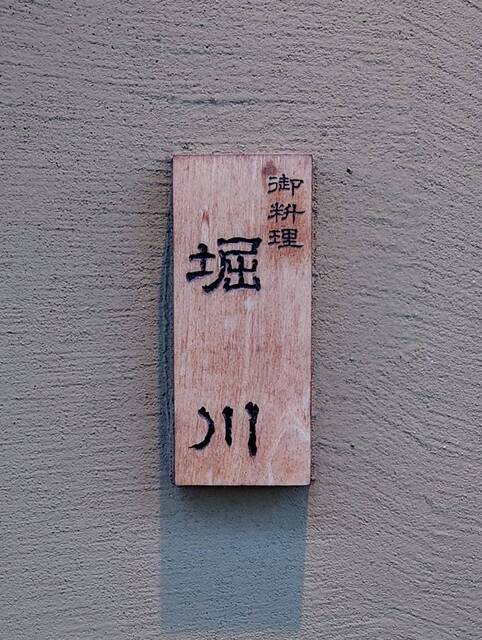 御料理
堀川